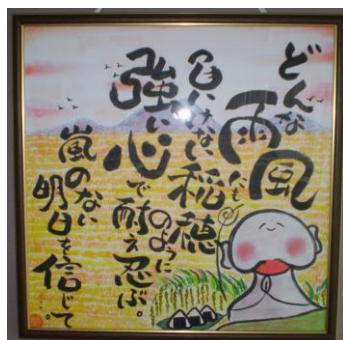 どんな
雨風にも
負けない稲穂
のように
強い心で耐え忍ぶ。
嵐のない
明日を信じて。